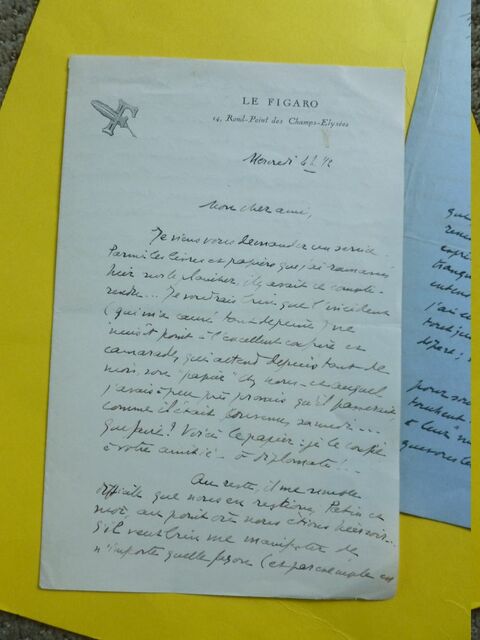 LE FIGARO
14, Rond-Point des Champs-Elysées
Mercredi
Mon cher ami,
Je viens vous demander un service.
Parmi les livres et papiers que j'ai ramassés
hier sur le plancher, il y avait ce compte-
rendu... Je voudrais bien que l'incident
(qui m'a causé tant de peine) ne
nuisît point à l'excellent confrère et
camarade, qui attend depuis tant de
mois, son "papier" chez nous - et auquel
j'avais à peu près promis qu'il passerait
comme il était convenu, samedi...
Que faire? Voici le papier: je le confie
à votre amitié - de diplomate!...
Au reste, il me semble
difficile que nous en restions, et
moi, au point où nous étions hier soir...
S'il veut bien me manifester de
n'importe quelle façon (et par exemple en
que
tranqu
entend
j'ai
toujou
pour
touchent
à leur